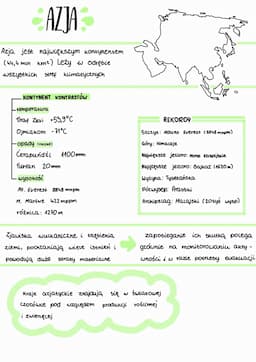 AZJA
Azja jest największym kontynentem
(44,4 mln km²) leży w obrębie
wszystkich stref klimatycznych
KONTYNENT KONTRASTÓW
temperatura
Tirat Zwi +53,9°C
Ojmiakon -71°C
opady
Czerapuńdżi 11000 mm
Turfan 20mm
wysokość
Mt. Everest 8848 m npm
M. Martwe 422 m ppm
różnica: 9270 m
REKORDY
Szczyt: Mount Everest (8848 mnpm)
Góry: Himalaje
Największe jezioro: Morze Kaspijskie
Najgłębsze jezioro: Bajkał (1620 m)
Wyżyna: Tybetańska
Półwysep: Arabski
Archipelag: Malajski (20tyś wysp)
Zjawiska wulkaniczne i trzęsienia
ziemi, pochłaniają wiele istnień i
powodują duże straty materialne
zapobieganie ich skutką polega
głównie na monitorowaniu akty-
wności i w razie potrzeby ewakuacji
Kraje azjatyckie znajdują się w światowej
czołówce pod względem produkcji roślinnej
i zwierzęcej